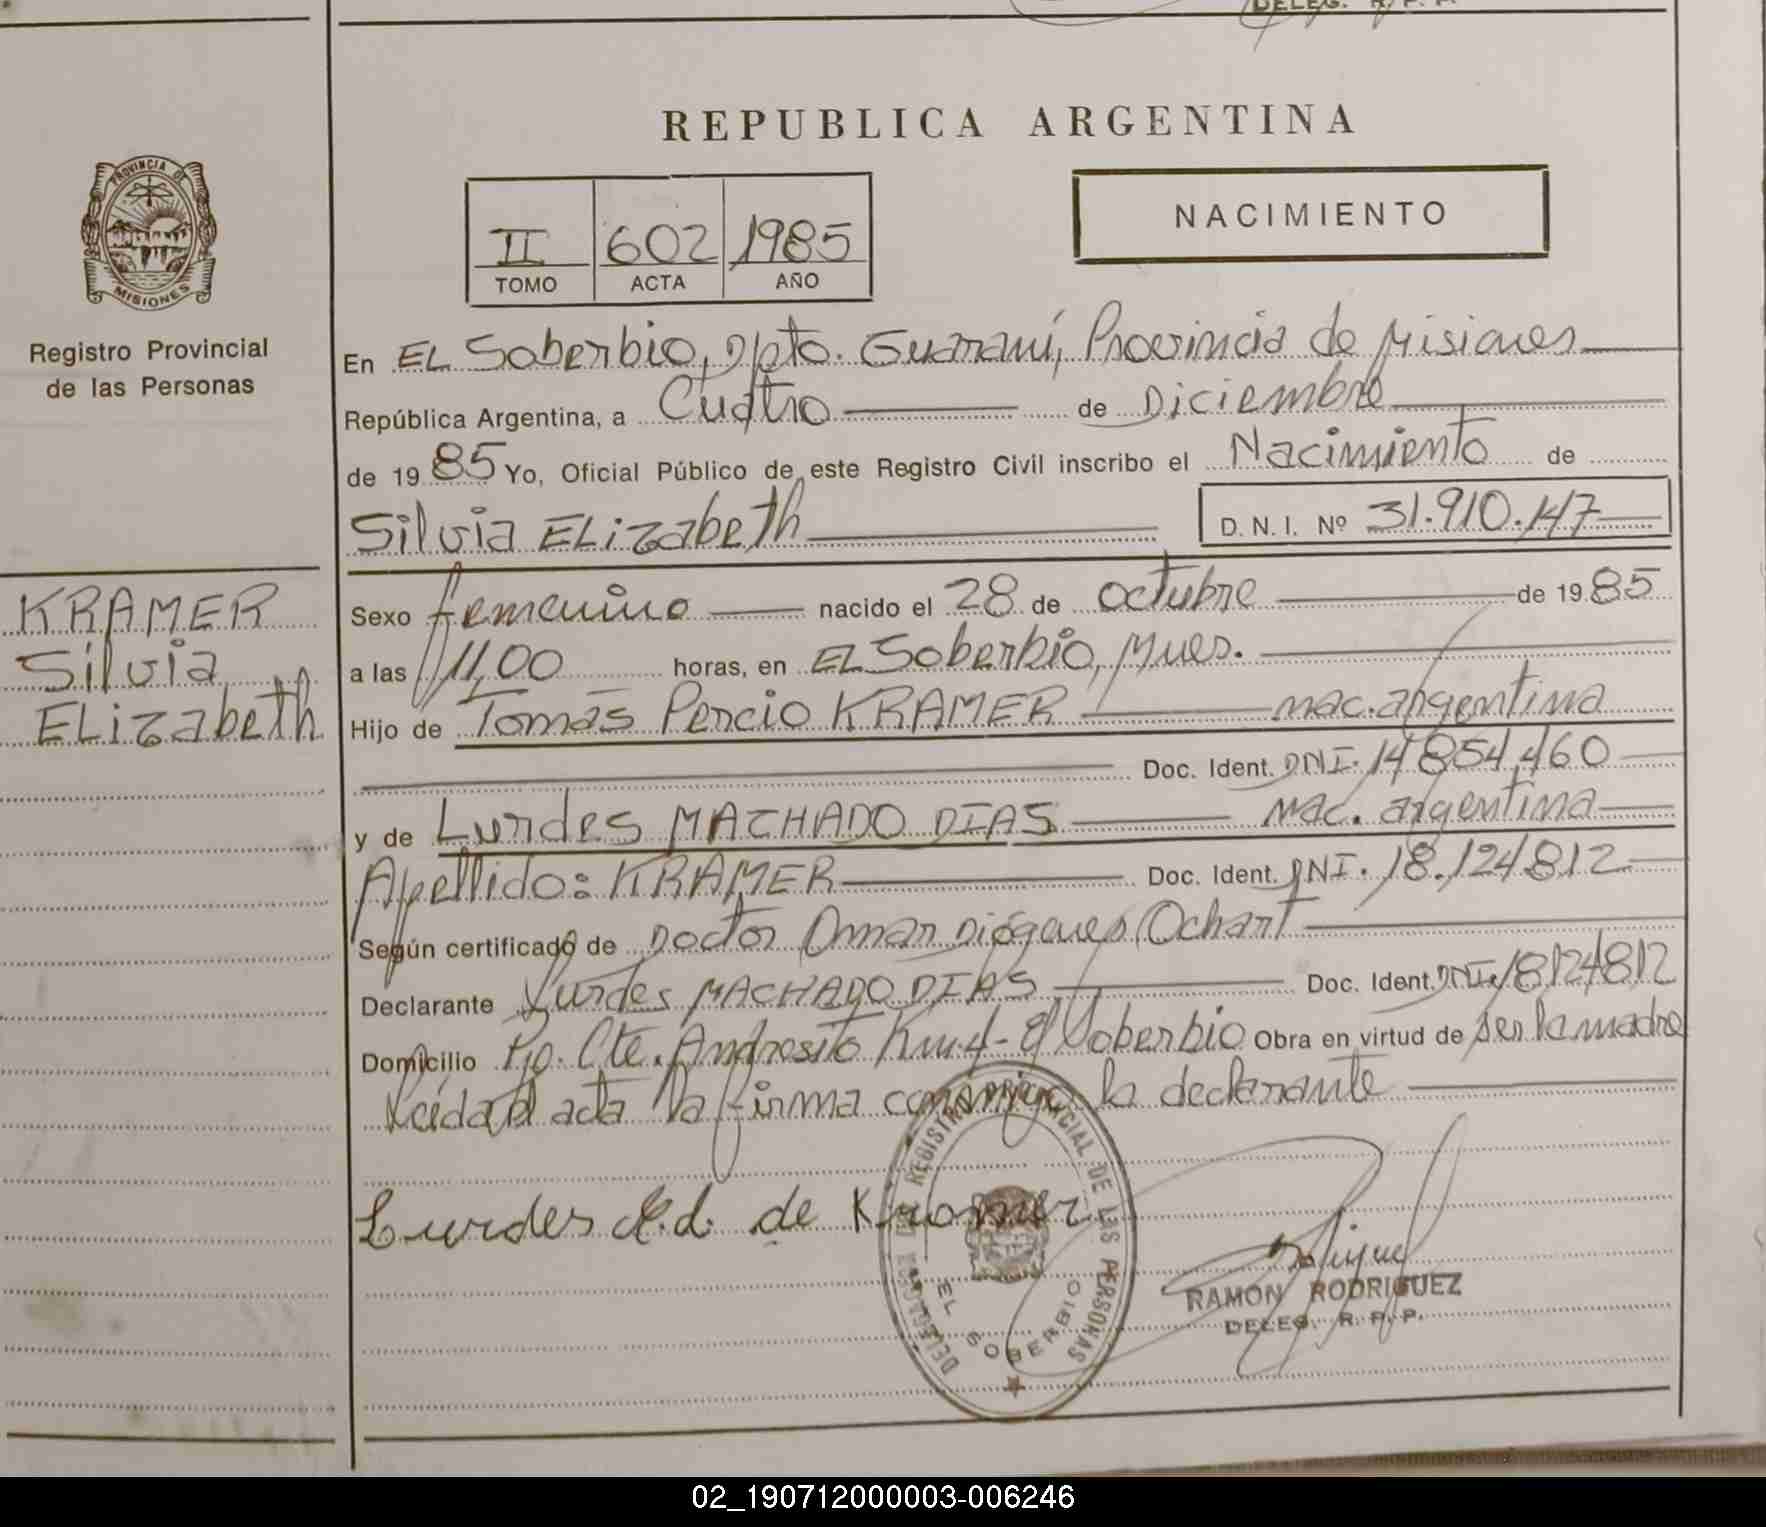 DELEG. R. P. P.
REPUBLICA ARGENTINA
PROVINCIA DE
MISIONES
Registro Provincial
de las Personas
II 602 1985
TOMO ACTA AÑO
NACIMIENTO
En EL Soberbio, Dpto. Guaraní, Provincia de Misiones
República Argentina, a Cuatro de Diciembre
de 1985 Yo, Oficial Público de este Registro Civil inscribo el Nacimiento de
Silvia ELizabeth D. N. I. Nº 31.910.147
KRAMER
Silvia
ELizabeth
Sexo femenino nacido el 28 de octubre de 1985
a las 11,00 horas, en EL Soberbio, Mnes.
Hijo de Tomás Percio KRAMER nac. argentina
Doc. Ident. DNI. 14854.460
y de Lurdes MACHADO DIAS nac. argentina
Apellido: KRAMER Doc. Ident. DNI. 18.124812
Según certificado de Doctor Omar Diógenes Ochart
Declarante Lurdes MACHADO DIAS Doc. Ident. DNI. 18124812
Domicilio Pjo. Cte. Andresito Km.4- El Soberbio Obra en virtud de ser la madre
Leída el acta la firma conmigo la declarante
Lurdes M.d. de Kramer
DELEGACION DEL REGISTRO PROVINCIAL DE LAS PERSONAS
EL SOBERBIO
RAMON RODRIGUEZ
DELEG. R. P. P.
02_190712000003-006246